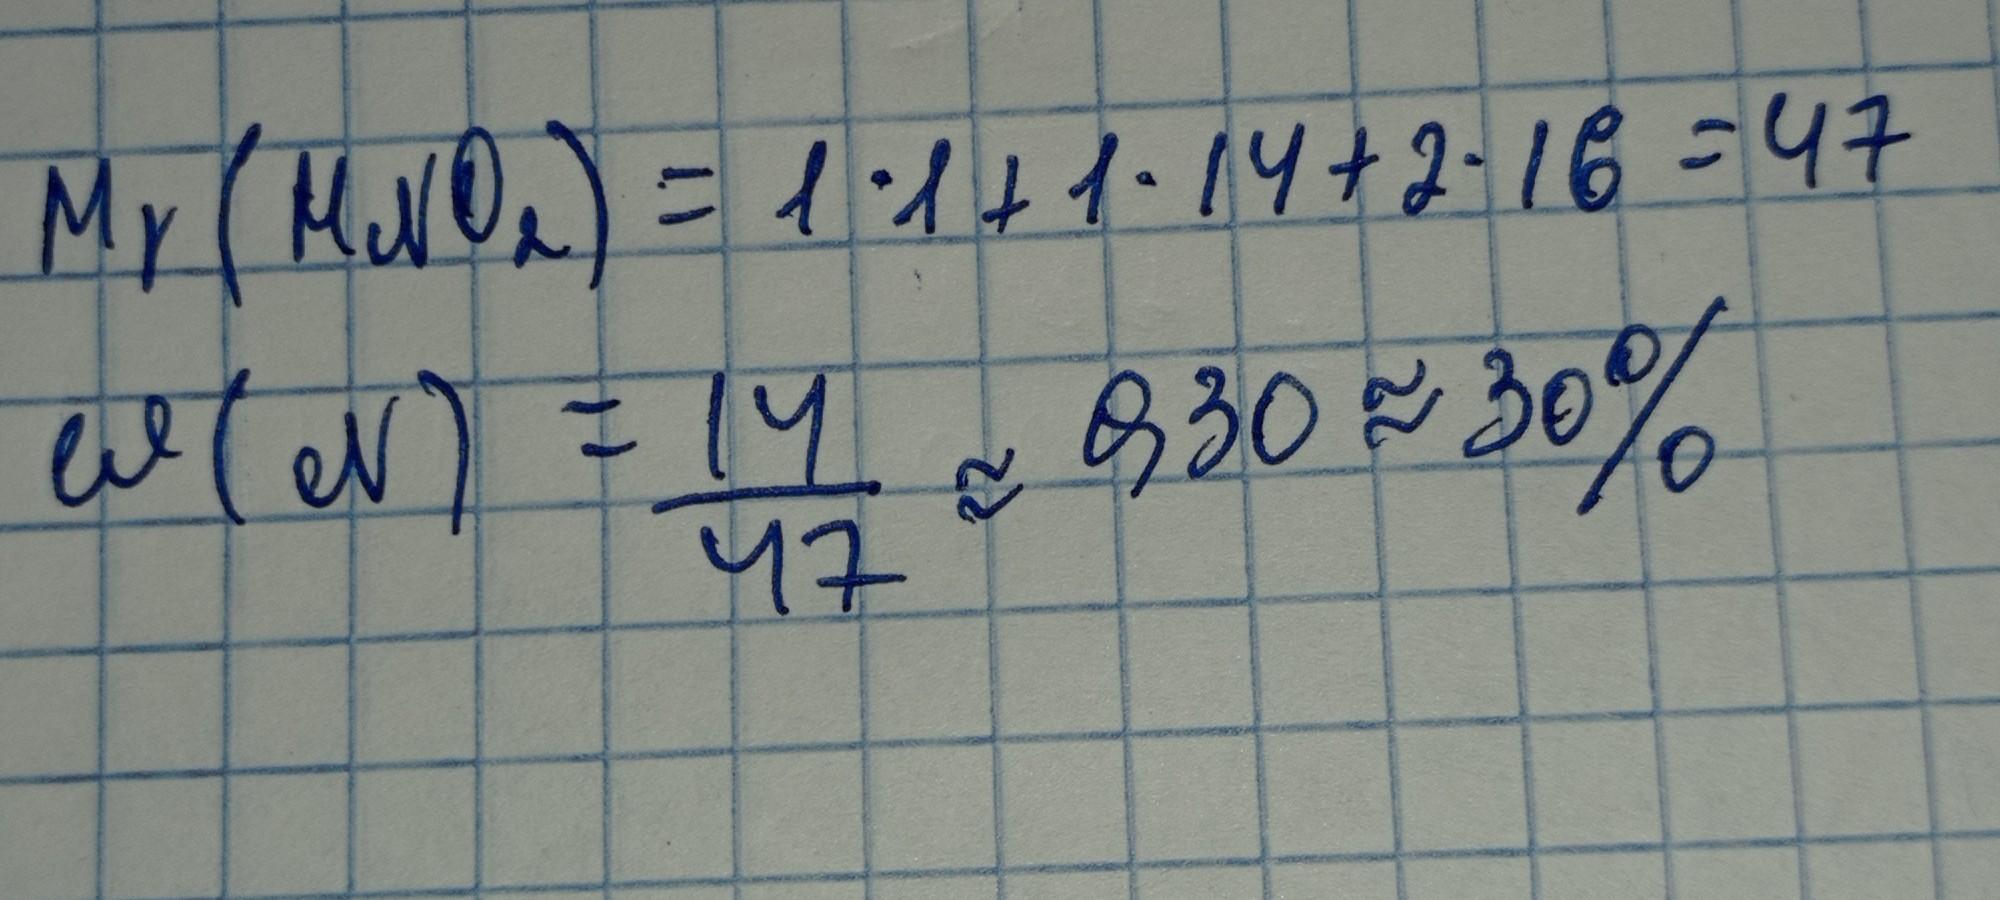 Mr(HNO₂) = 1·1+1·14+2·16 = 47
w(N) = 14/47 ≈ 0,30 ≈ 30%